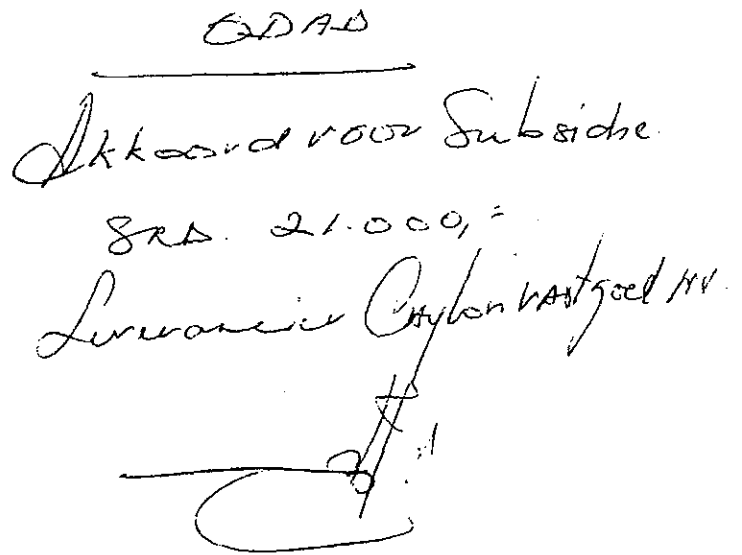 ODAD
Akkoord voor Subsidie
SRD. 21.000,=
Leverancier Caylon Vastgoed NV.